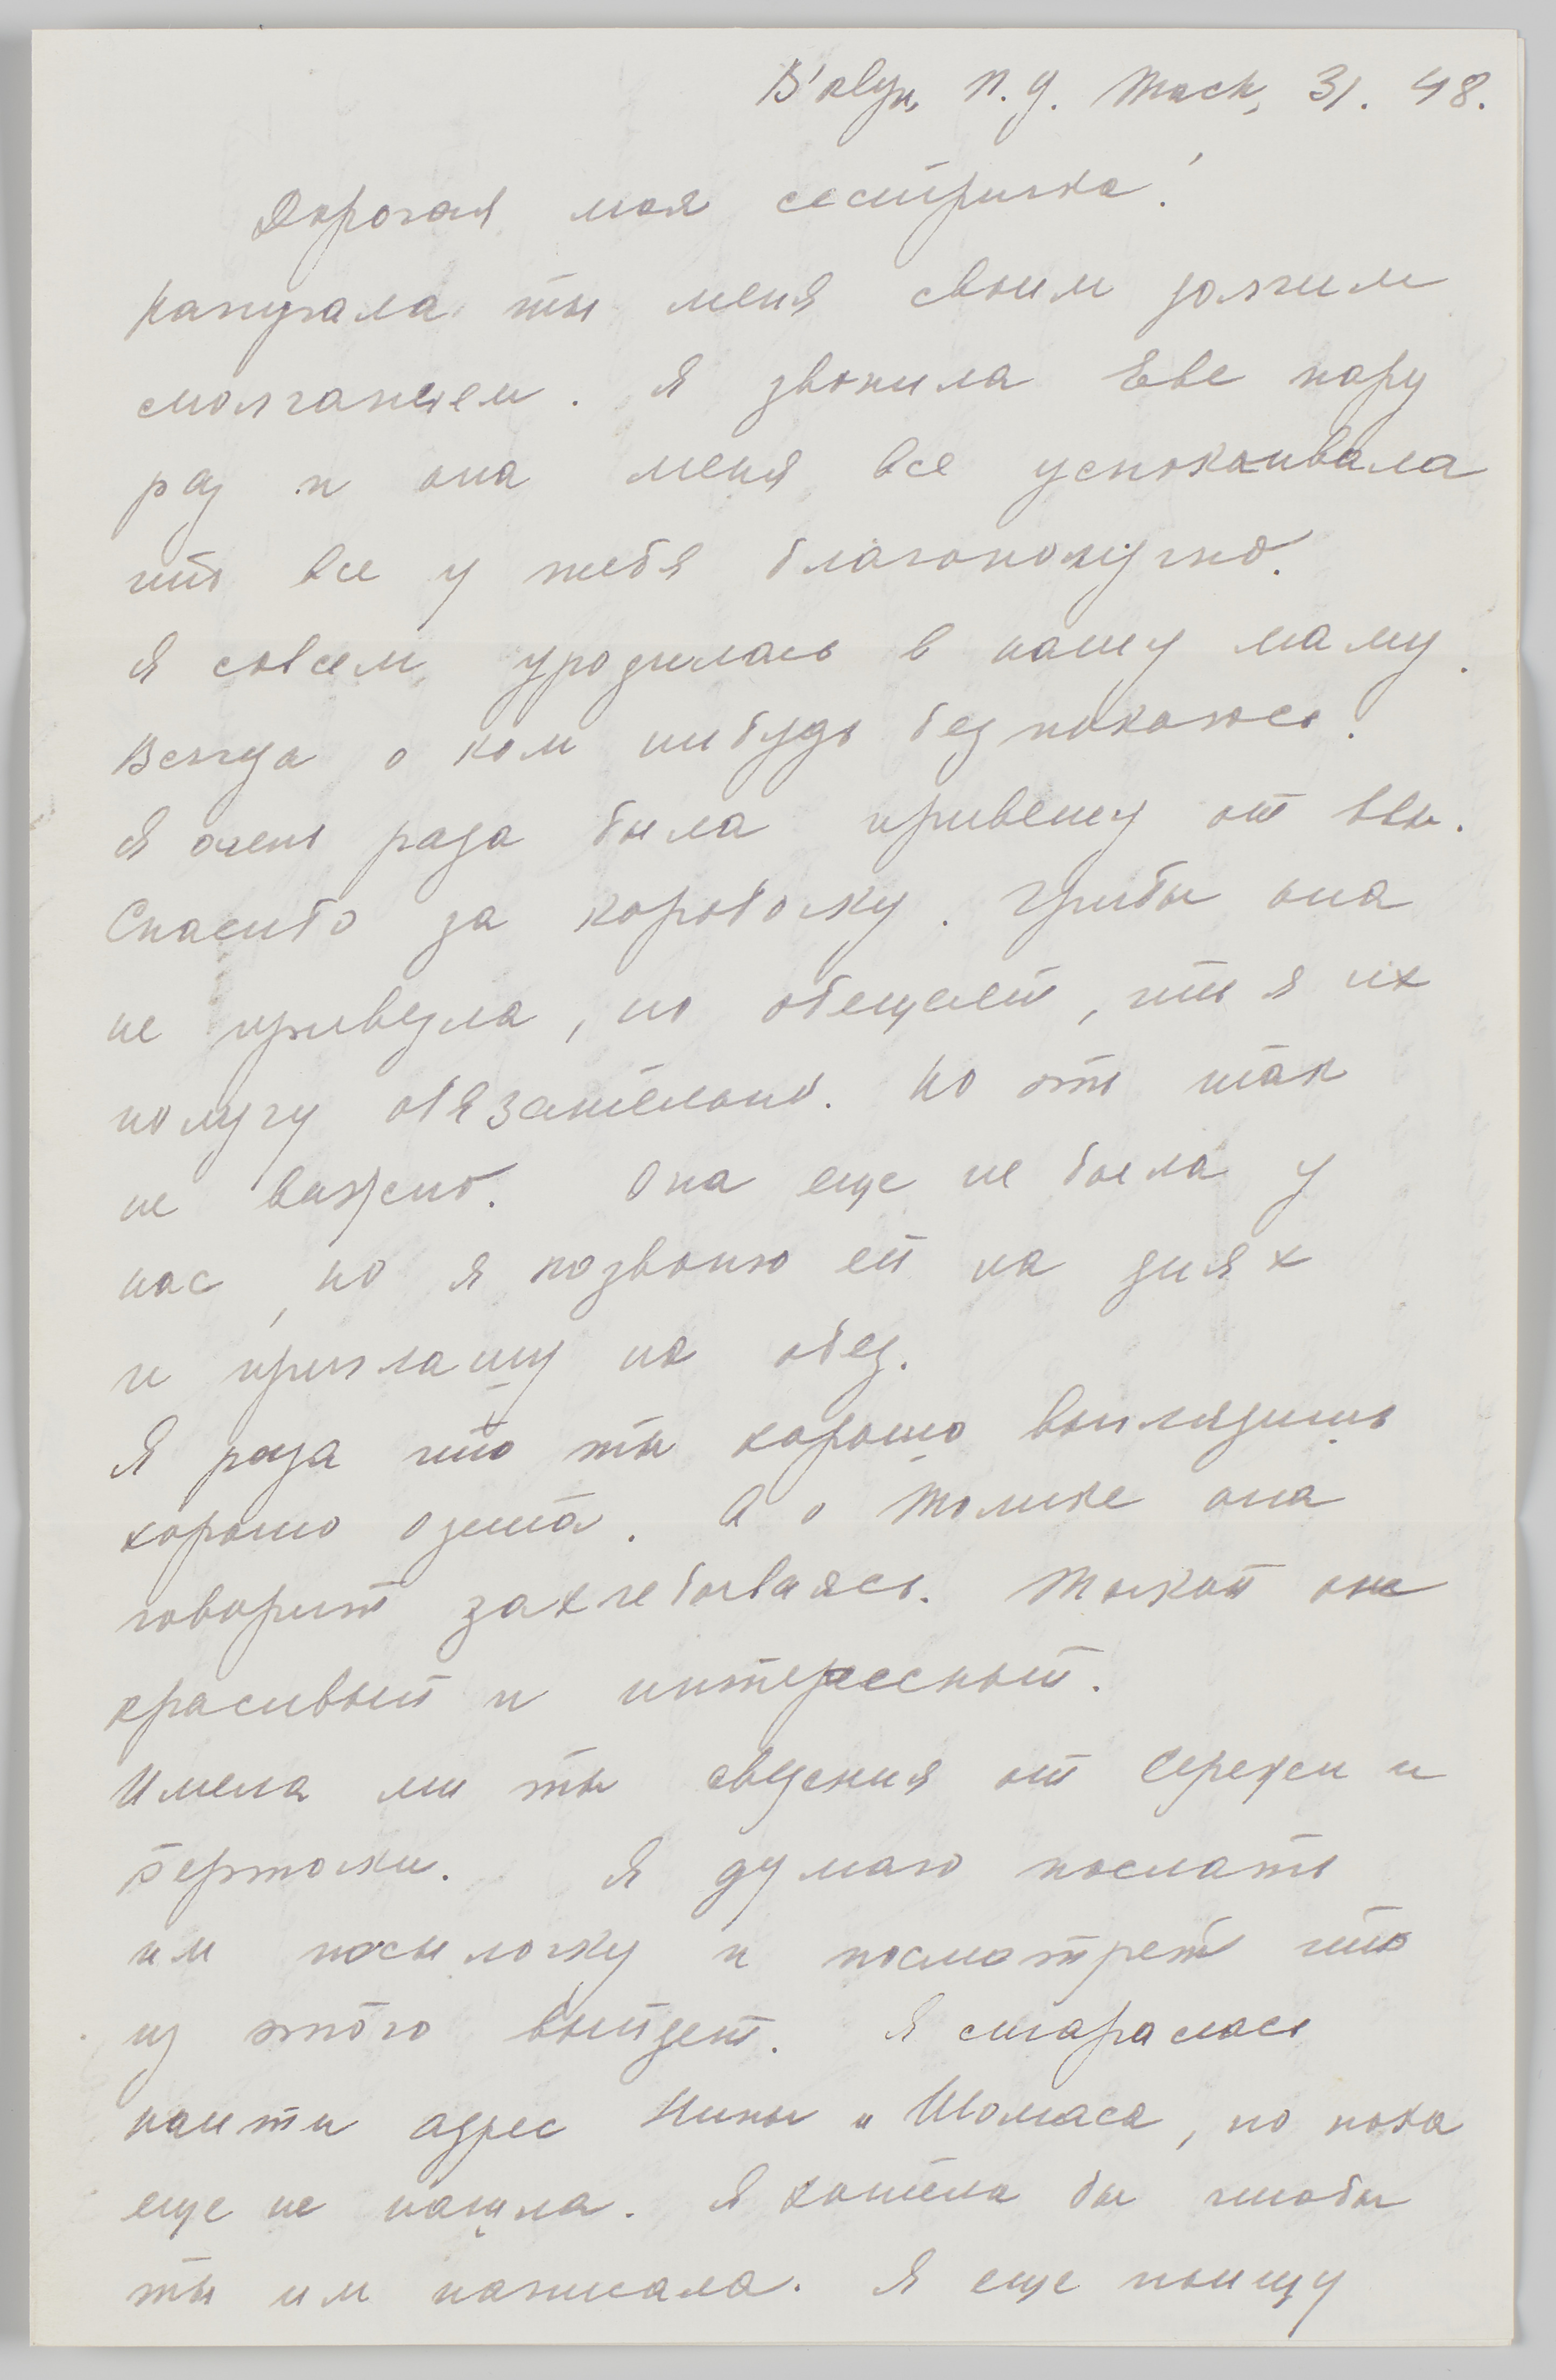 B'klyn, N.Y. March, 31. 48.
Дорогая моя сестричка!
Напугала ты меня своим долгим
смолчанием. Я звонила Еве пару
раз и она меня все успокаивала
что все у тебя благополучно.
Я совсем уродилась в нашу маму.
Всегда о ком нибудь безпокоюсь.
Я очень рада была привету от Евы.
Спасибо за коробочку. Грибы она
не привезла, но обещает, что я их
получу обязательно. Но это так
не важно. Она еще не была у
нас, но я позвоню ей на днях
и приглашу на обед.
Я рада что ты хорошо выглядишь
хорошо одета. А о Толике она
говорит захлебываясь. Такой он
красивый и интересный.
Имела ли ты сведения от Сережи и
Берточки. Я думаю послать
им посылочку и посмотреть что
из этого выйдет. Я старалась
найти адрес Нины и Шомаса, но пока
еще не нашла. Я хотела бы чтобы
ты им написала. Я еще поищу